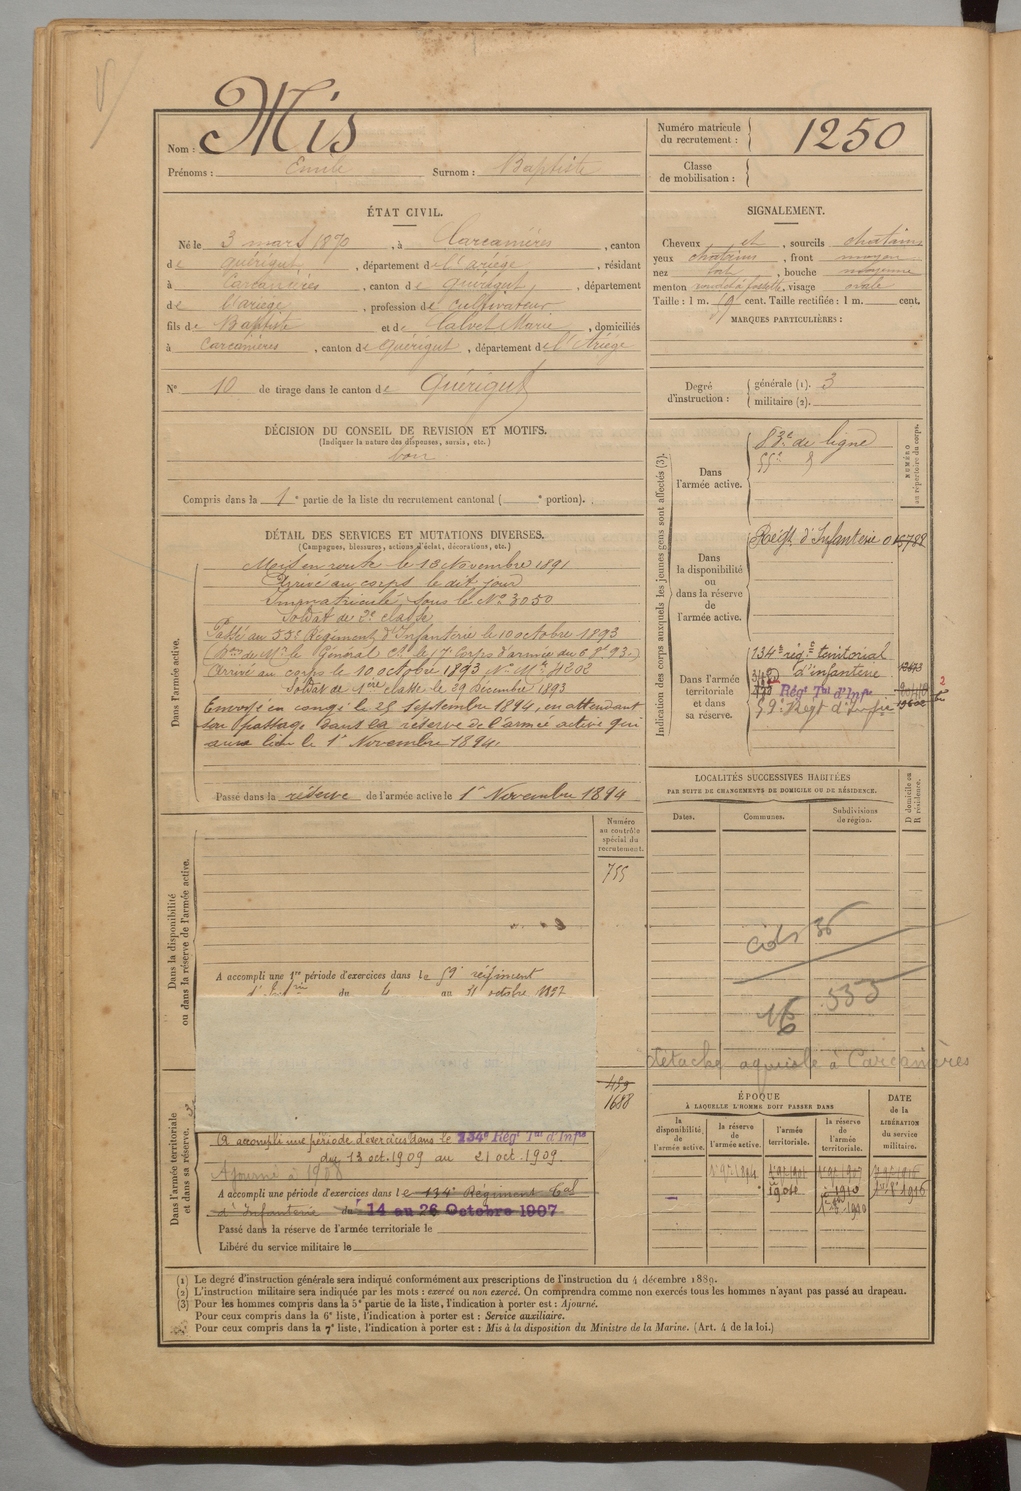 Nom : Mis
Prénoms : Emile Surnom : Baptiste
Numéro matricule du recrutement : 1250
Classe de mobilisation :
ÉTAT CIVIL.
Né le 3 mars 1870, à Carcanières, canton
de Quérigut, département de l'Ariège, résidant
à Carcanières, canton de Quérigut, département
de l'Ariège, profession de cultivateur
fils de Baptiste et de Calvet Marie, domiciliés
à Carcanières, canton de Quérigut, département de l'Ariège
N° 10 de tirage dans le canton de Quérigut
SIGNALEMENT.
Cheveux et, sourcils chatains
yeux chatains, front moyen
nez fort, bouche moyenne
menton rond à fossette, visage ovale
Taille : 1 m. 59 cent. Taille rectifiée : 1 m. cent.
MARQUES PARTICULIÈRES :
Degré d'instruction : générale (1). 3
militaire (2).
DÉCISION DU CONSEIL DE REVISION ET MOTIFS.
(Indiquer la nature des dispenses, sursis, etc.)
bon
Compris dans la 1e partie de la liste du recrutement cantonal ( e portion).
DÉTAIL DES SERVICES ET MUTATIONS DIVERSES.
(Campagnes, blessures, actions d'éclat, décorations, etc.)
Dans l'armée active.
Mis en route le 13 Novembre 1891
Arrivé au corps le dit jour
Immatriculé sous le N° 3050
Soldat de 2e classe
Passé au 55e Régiment d'Infanterie le 10 octobre 1893
Arrivé au corps le 10 octobre 1893 N° Mle 4202
Soldat de 1ère classe le 29 Décembre 1893
Envoyé en congé le 25 septembre 1894, en attendant
son passage dans la réserve de l'armée active qui
aura lieu le 1er Novembre 1894.
Passé dans la réserve de l'armée active le 1er Novembre 1894
Indication des corps auxquels les jeunes gens sont affectés (3).
NUMÉRO au répertoire du corps.
Dans l'armée active.
83e de ligne
55e
Dans la disponibilité ou dans la réserve de l'armée active.
Régt d'Infanterie 015788
Dans l'armée territoriale et dans sa réserve.
134e rég.t territorial
d'infanterie
Régt Tal d'Infie
59e Régt d'Infie
LOCALITÉS SUCCESSIVES HABITÉES
PAR SUITE DE CHANGEMENTS DE DOMICILE OU DE RÉSIDENCE.
Dates. Communes. Subdivisions de région. D domicile ou R résidence.
16
533
détaché agricole à Carcanières
Numéro au contrôle spécial du recrutement.
755
Dans la disponibilité ou dans la réserve de l'armée active.
A accompli une 1re période d'exercices dans le 59e régiment
d'Infrie du 4 au 31 octobre 1897
459
1688
Dans l'armée territoriale et dans sa réserve.
A accompli une période d'exercices dans le 134e Régt Tal d'Infie
du 13 oct. 1909 au 21 oct. 1909.
Ajourné à 1908
A accompli une période d'exercices dans le 134e Régiment Tal
d'Infanterie du 14 au 26 Octobre 1907
Passé dans la réserve de l'armée territoriale le
Libéré du service militaire le
ÉPOQUE
À LAQUELLE L'HOMME DOIT PASSER DANS
la disponibilité de l'armée active. la réserve de l'armée active. l'armée territoriale. la réserve de l'armée territoriale.
DATE de la LIBÉRATION du service militaire.
1904
1910
1916
(1) Le degré d'instruction générale sera indiqué conformément aux prescriptions de l'instruction du 4 décembre 1889.
(2) L'instruction militaire sera indiquée par les mots : exercé ou non exercé. On comprendra comme non exercés tous les hommes n'ayant pas passé au drapeau.
(3) Pour les hommes compris dans la 5e partie de la liste, l'indication à porter est : Ajourné.
Pour ceux compris dans la 6e liste, l'indication à porter est : Service auxiliaire.
Pour ceux compris dans la 7e liste, l'indication à porter est : Mis à la disposition du Ministre de la Marine. (Art. 4 de la loi.)